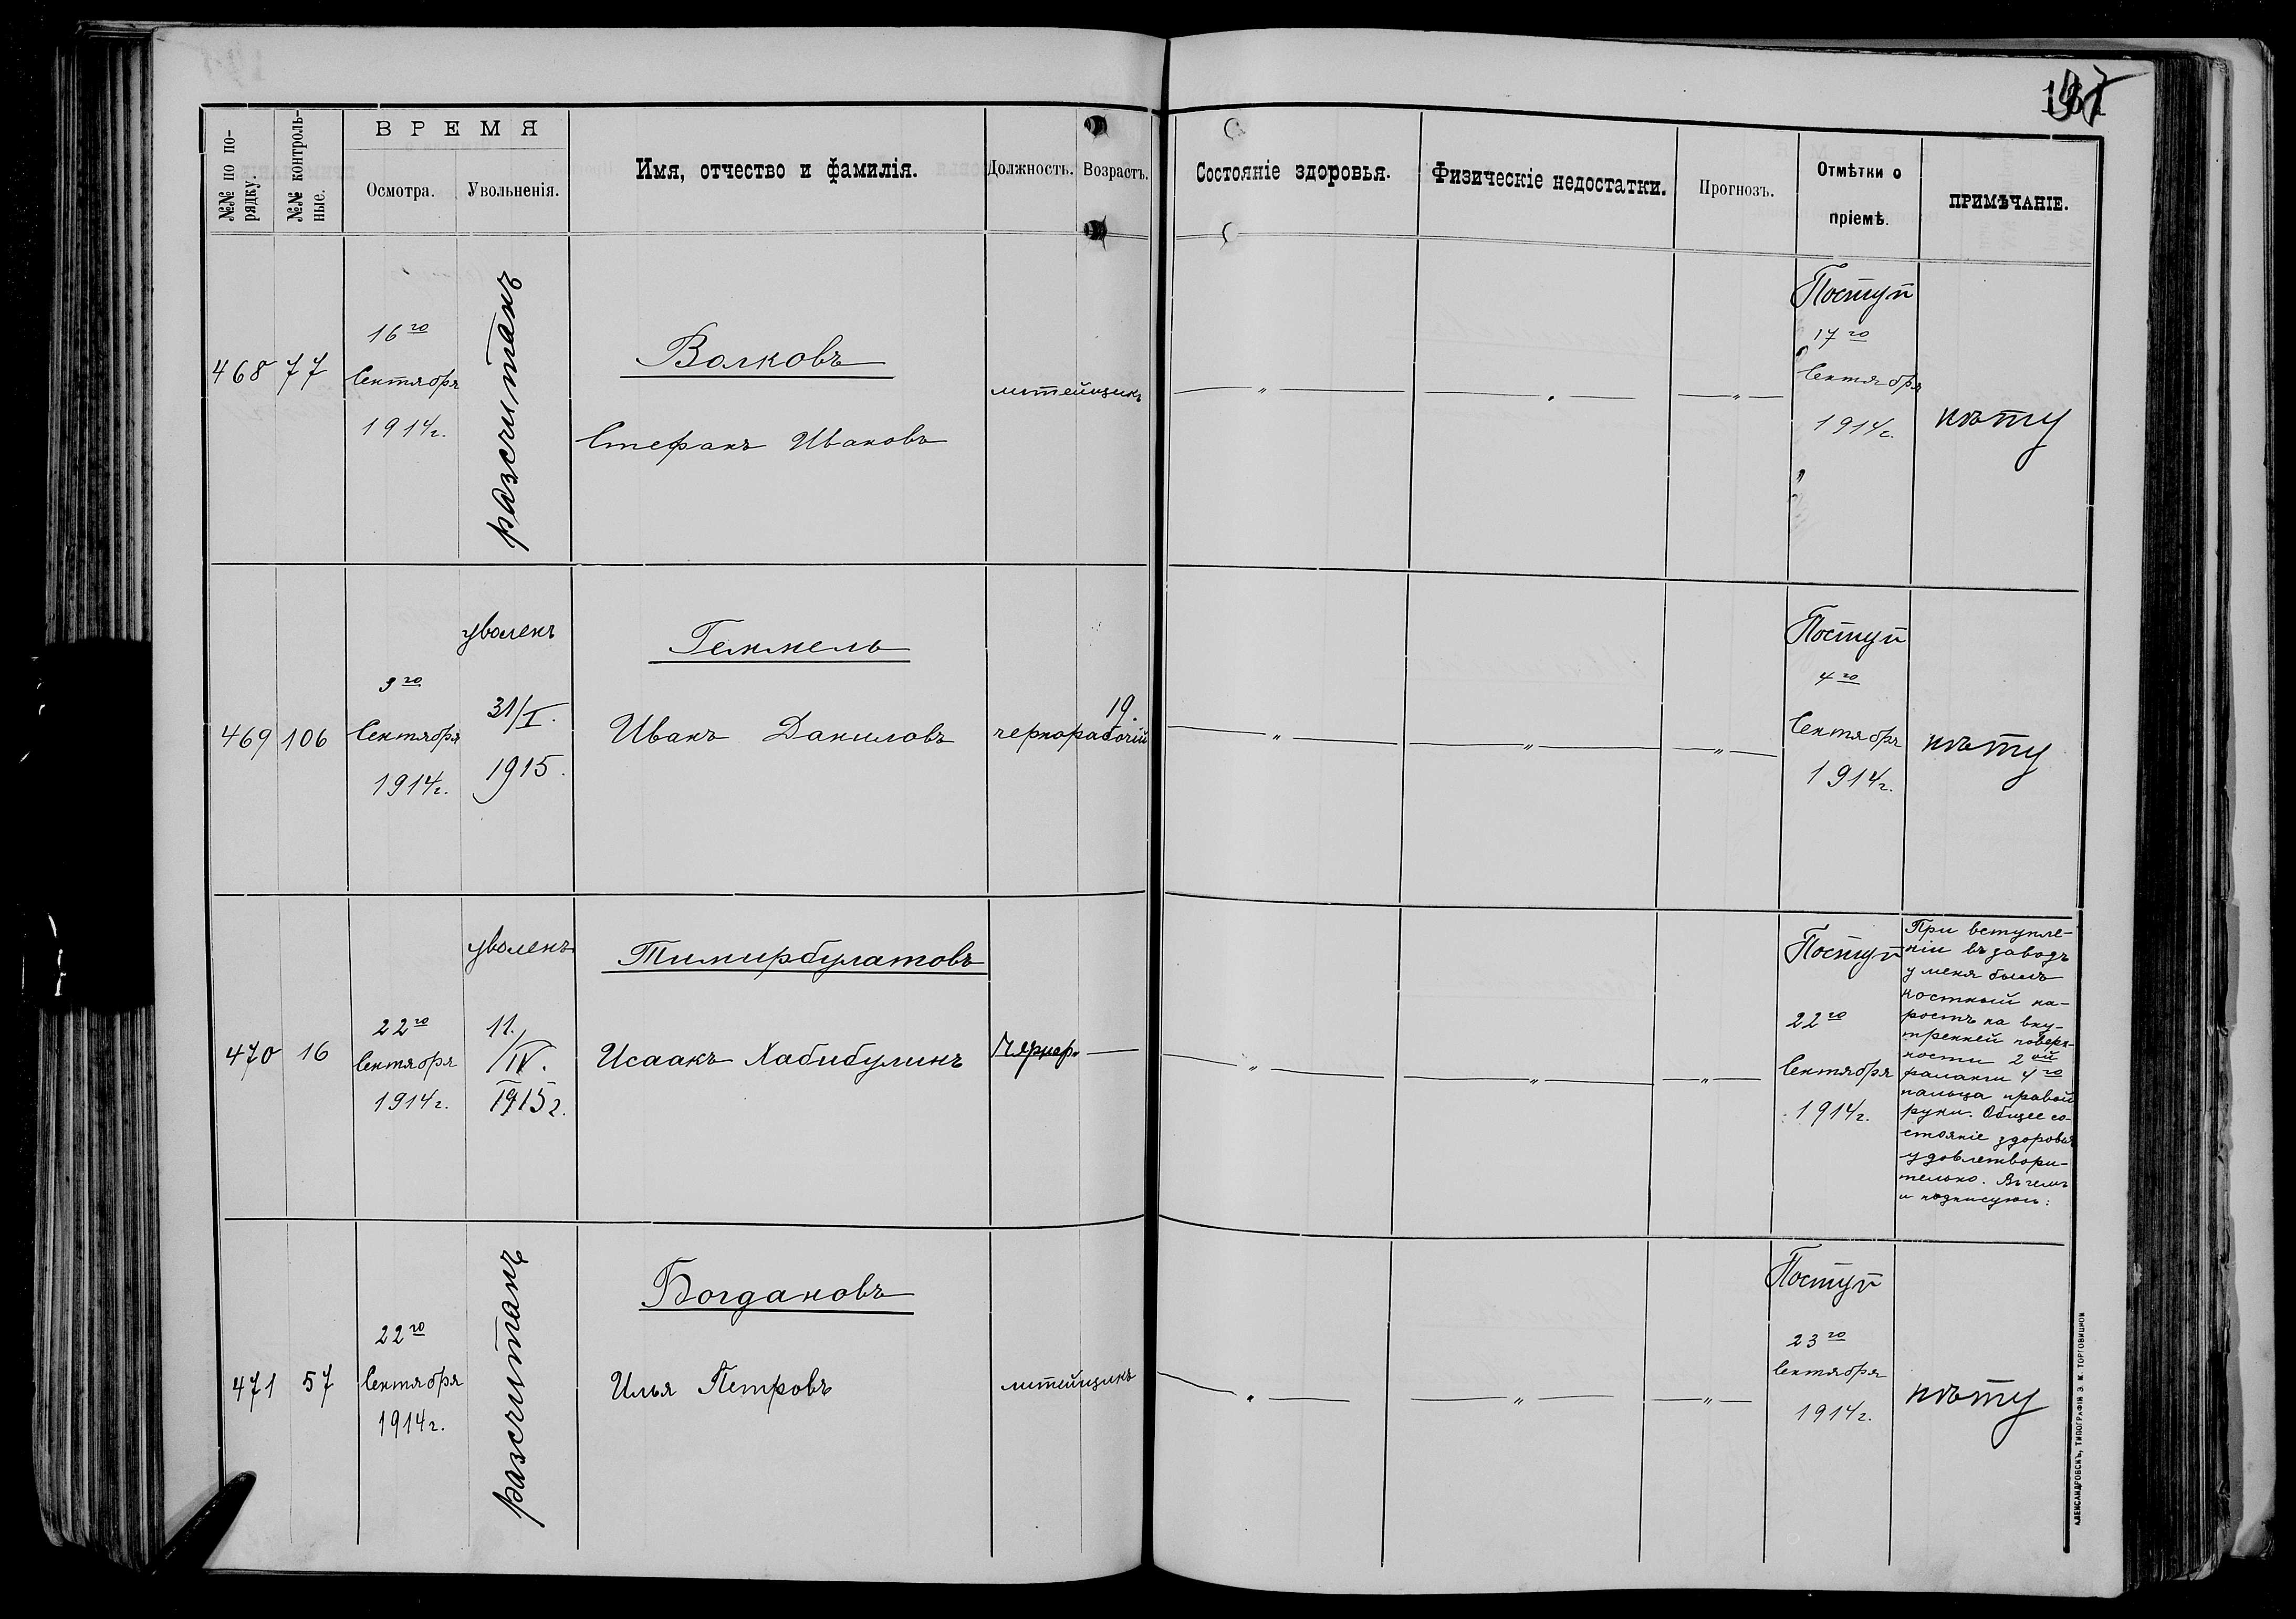 №№ по по-
рядку.
№№ контроль-
ные.
ВРЕМЯ
Осмотра.
Увольненія.
Имя, отчество и фамилія.
Должность.
Возрастъ.
Состояніе здоровья.
Физическіе недостатки.
Прогнозъ.
Отмѣтки о
пріемѣ.
ПРИМѢЧАНІЕ.
468
77
16го
Сентября
1914г.
разсчитанъ
Волковъ
Стефанъ Ивановъ
литейщикъ
— „ —
— „ —
— „ —
Поступ
17го
Сентября
1914г.
нѣту
469
106
3го
Сентября
1914г.
уволенъ
31/I.
1915.
Геммель
Иванъ Даниловъ
чернорабочій
19.
— „ —
— „ —
— „ —
Поступ
4го
Сентября
1914г.
нѣту
470
16
22го
Сентября
1914г.
уволенъ
11.
/IV.
1915г.
Тимирбулатовъ
Исаакъ Хабибулинъ
Чернор.
—
— „ —
— „ —
— „ —
Поступ
22го
Сентября
1914г.
При вступле-
ніи въ заводъ
у меня былъ
костный на-
ростъ на вну-
тренней поверх-
ности 2ой
фаланги 4го
пальца правой
руки. Общее со-
стояніе здоровья
удовлетвори-
тельно. Въ чемъ
и подписуюсь:
471
57
22го
Сентября
1914г.
разсчитанъ
Богдановъ
Илья Петровъ
литейщикъ
— „ —
— „ —
— „ —
Поступ
23го
Сентября
1914г.
нѣту
АЛЕКСАНДРОВСКЪ, ТИПОГРАФІЯ Э. М. ТОРГОВИЦКОЙ